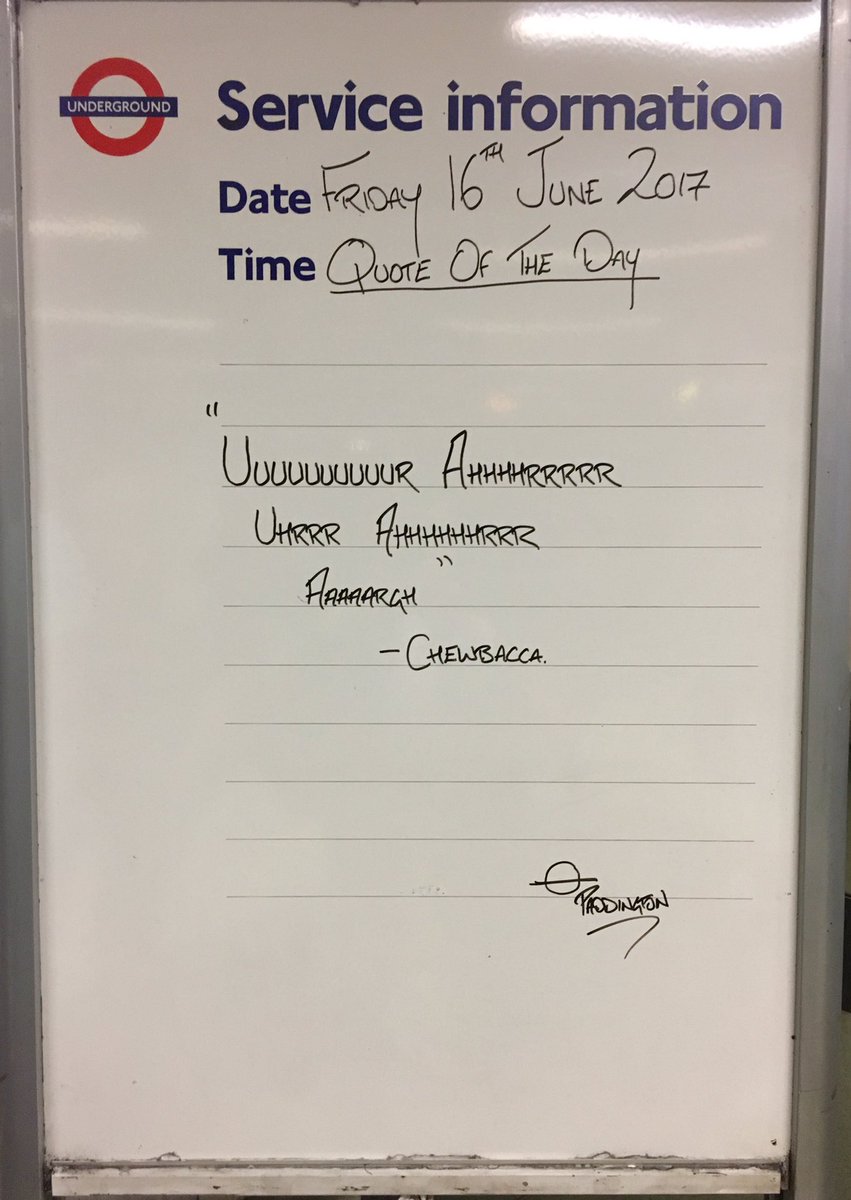 UNDERGROUND
Service information
Date FRIDAY 16TH JUNE 2017
Time QUOTE OF THE DAY
"UUUUUUUUUUR AHHHHRRRRR
UHRRR AHHHHHHRRR
AAAAARGH"
- CHEWBACCA.
PADDINGTON